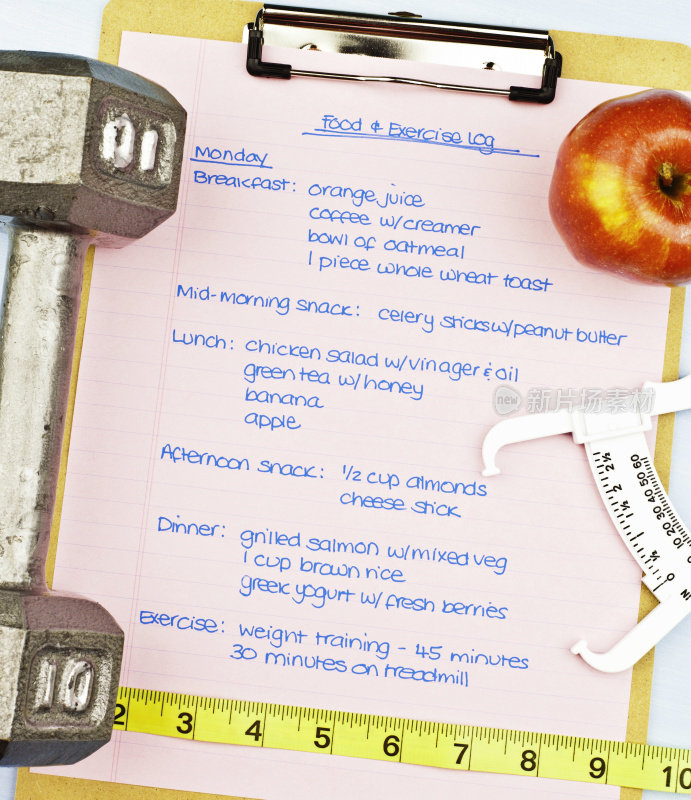 Food & Exercise Log
Monday
Breakfast: orange juice
coffee w/creamer
bowl of oatmeal
1 piece whole wheat toast
Mid-morning snack: celery sticks w/peanut butter
Lunch: chicken salad w/vinager & oil
green tea w/honey
banana
apple
Afternoon snack: 1/2 cup almonds
cheese stick
Dinner: grilled salmon w/mixed veg
1 cup brown rice
greek yogurt w/fresh berries
Exercise: weight training - 45 minutes
30 minutes on treadmill
10
10
2 3 4 5 6 7 8 9 10
0 ½ 1 1½ 2 2½
IN
0 10 20 30 40 50 60
new 新片场素材